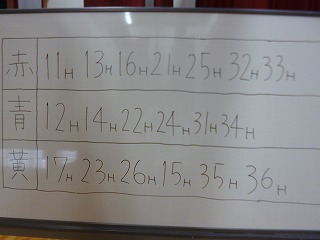 赤 11H 13H 16H 21H 25H 32H 33H
青 12H 14H 22H 24H 31H 34H
黄 17H 23H 26H 15H 35H 36H